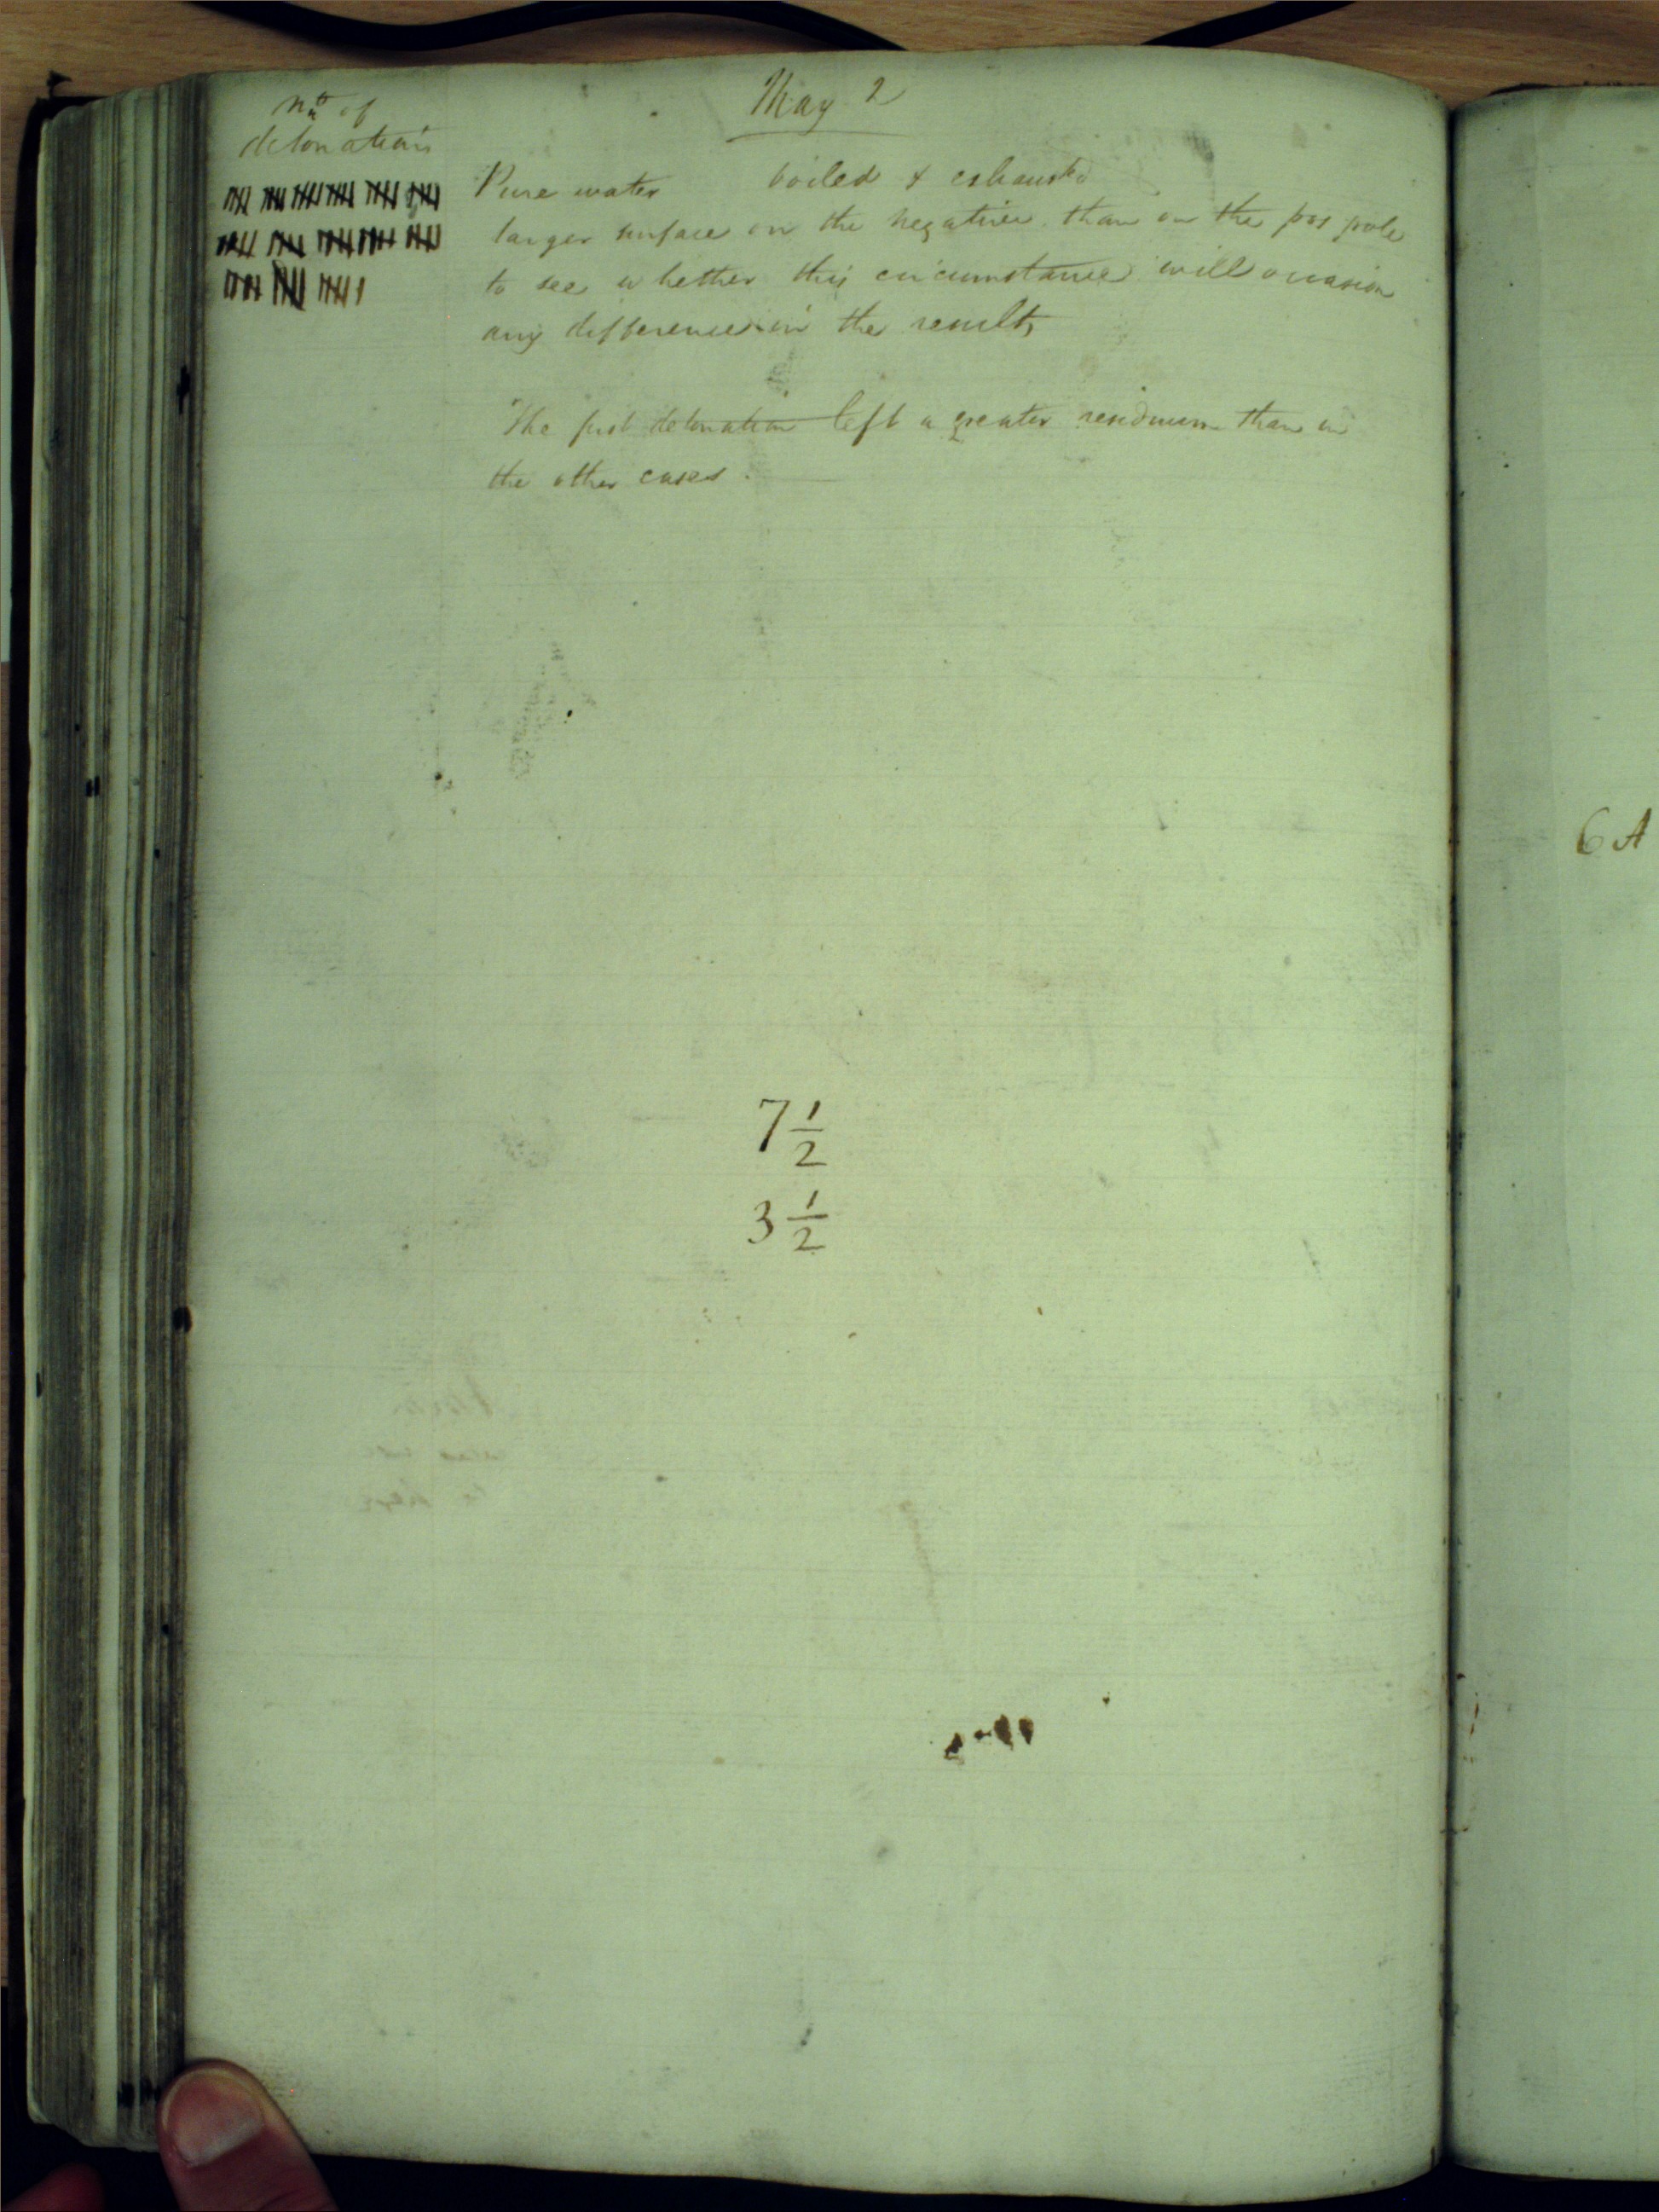 No of
detonations
May 2
Pure water boiled & exhausted
larger surface on the negative than on the pos pole
to see whether this circumstance will occasion
any difference in the results
The first detonation left a greater residuum than in
the other cases.
7 1/2
3 1/2
6 A